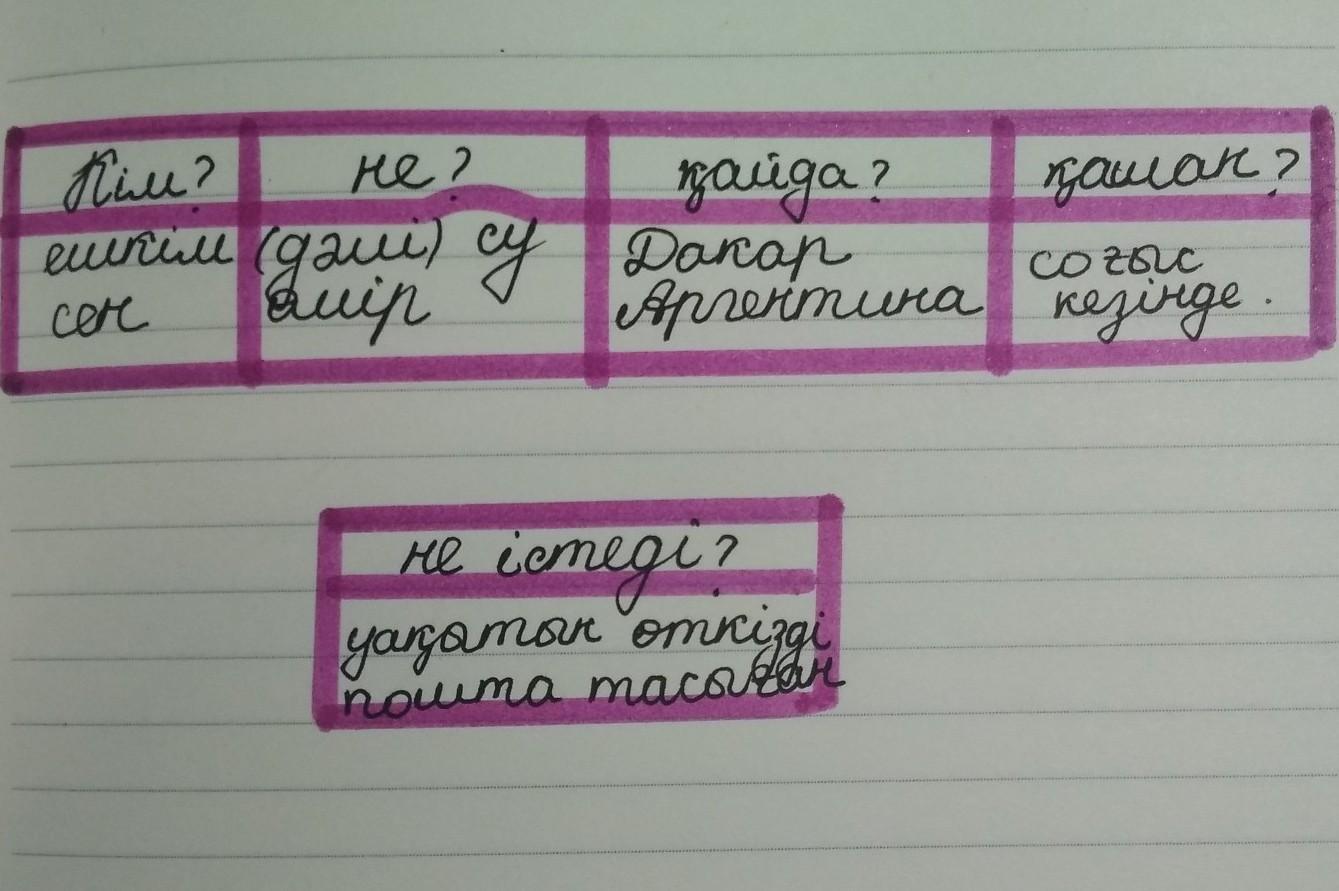 Кім? не? қайда? қашан?
ешкім (дәмі) су Дакар соғыс
сен өмір Аргентина кезінде.
не істеді?
уақытын өткізді
пошта тасыған